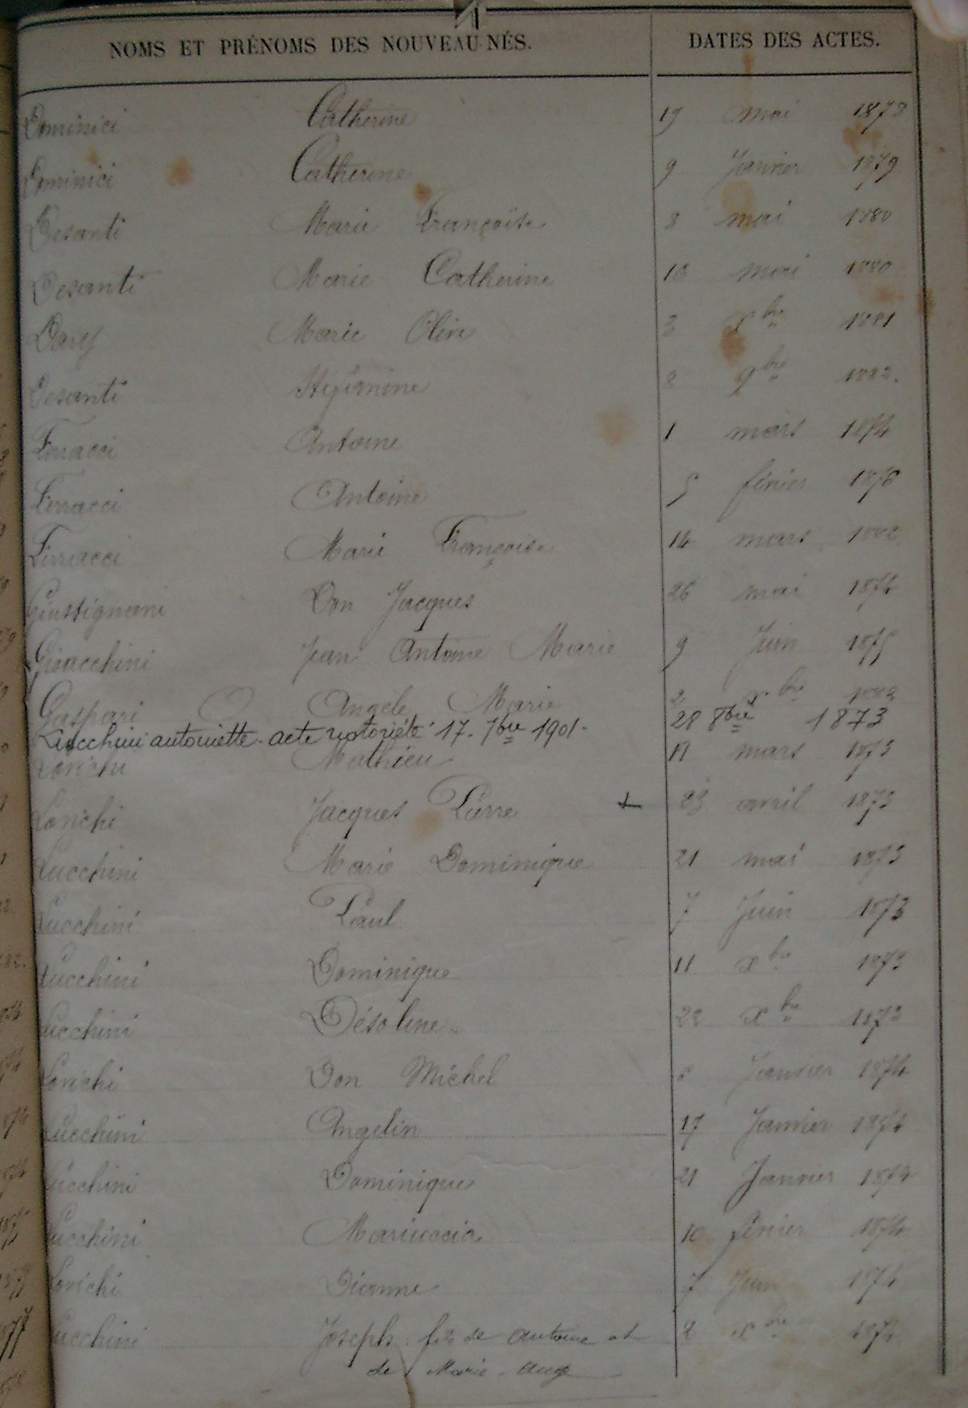 NOMS ET PRÉNOMS DES NOUVEAU-NÉS. DATES DES ACTES.
Dominici Catherine 19 mai 1873
Dominici Catherine 9 Janvier 1879
Desanti Marie Françoise 8 mai 1880
Desanti Marie Catherine 10 mai 1880
Marie Olive 3 xbre 1881
Desanti 2 9bre 1882.
Ferracci Antoine 1 mars 1874
Ferracci Antoine 5 février 1876
Ferracci Marie Françoise 14 mars 1882
Giustignani Don Jacques 26 mai 1874
Gioacchini Jean Antoine Marie 9 Juin 1875
Gaspari Angele Marie 2 xbre 1882
Lucchini antoinette. acte notoriété 17. 7bre 1901. 28 8bre 1873
Lonchi Mathieu 11 mars 1873
Lonchi Jacques Pierre + 23 avril 1873
Lucchini Marie Dominique 21 mai 1873
Lucchini Paul 7 Juin 1873
Lucchini Dominique 11 xbre 1873
Lucchini Désoline 22 xbre 1873
Lonchi Don Michel 8 Janvier 1874
Lucchini Angelin 17 Janvier 1874
Lucchini Dominique 21 Janvier 1874
Lucchini Mariuccia 10 février 1874
Lonchi Dianne 7 Juin 1874
Lucchini Joseph fils de Antoine et 2 xbre 1874
de Marie-Ange